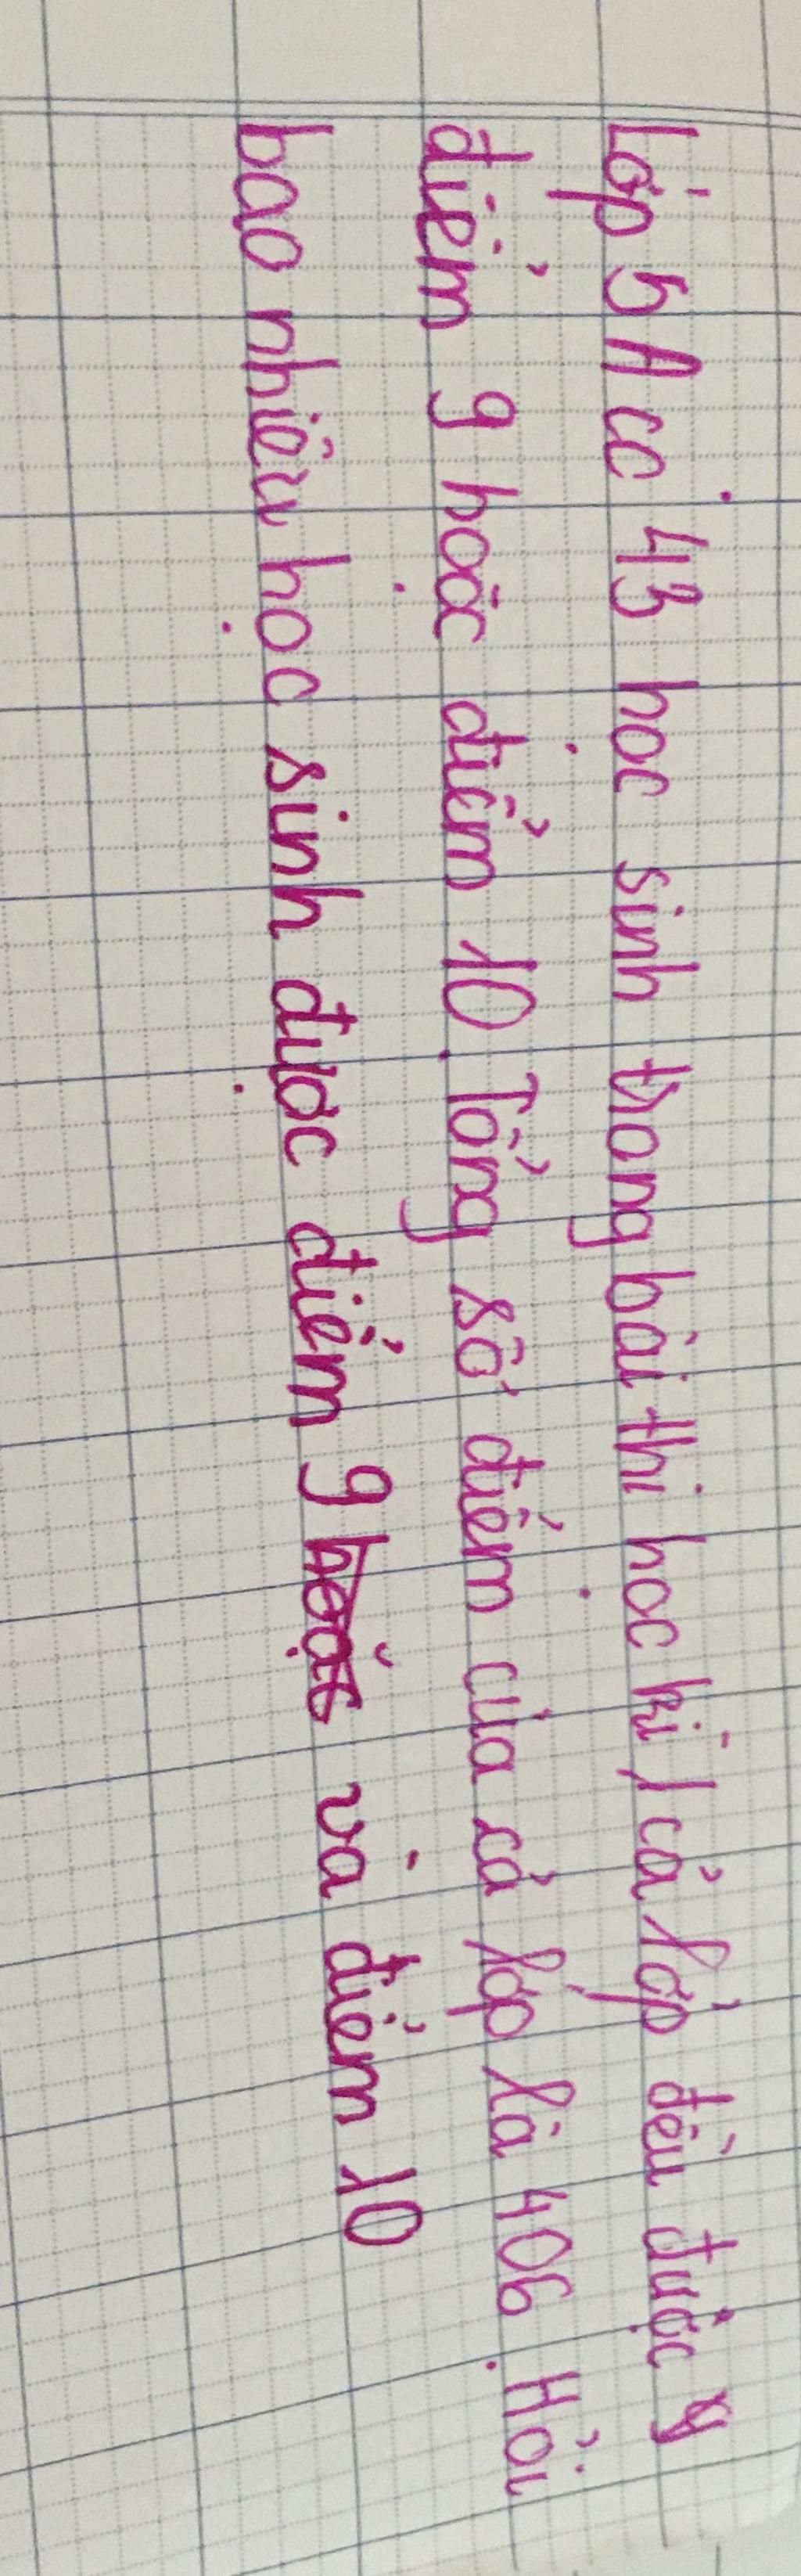 Lớp 5A có 43 học sinh trong bài thi học kì 1 cả lớp đều được
điểm 9 hoặc điểm 10. Tổng số điểm của cả lớp là 406. Hỏi
bao nhiêu học sinh được điểm 9 và điểm 10